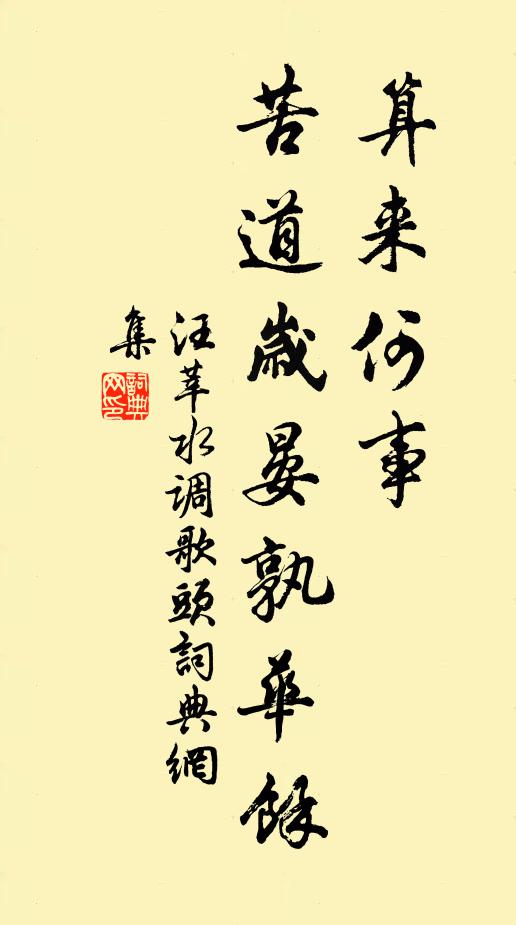 算来何事
苦道歲晏孰華餘
汪莘水调歌頭詞典網
集
詞典
网印